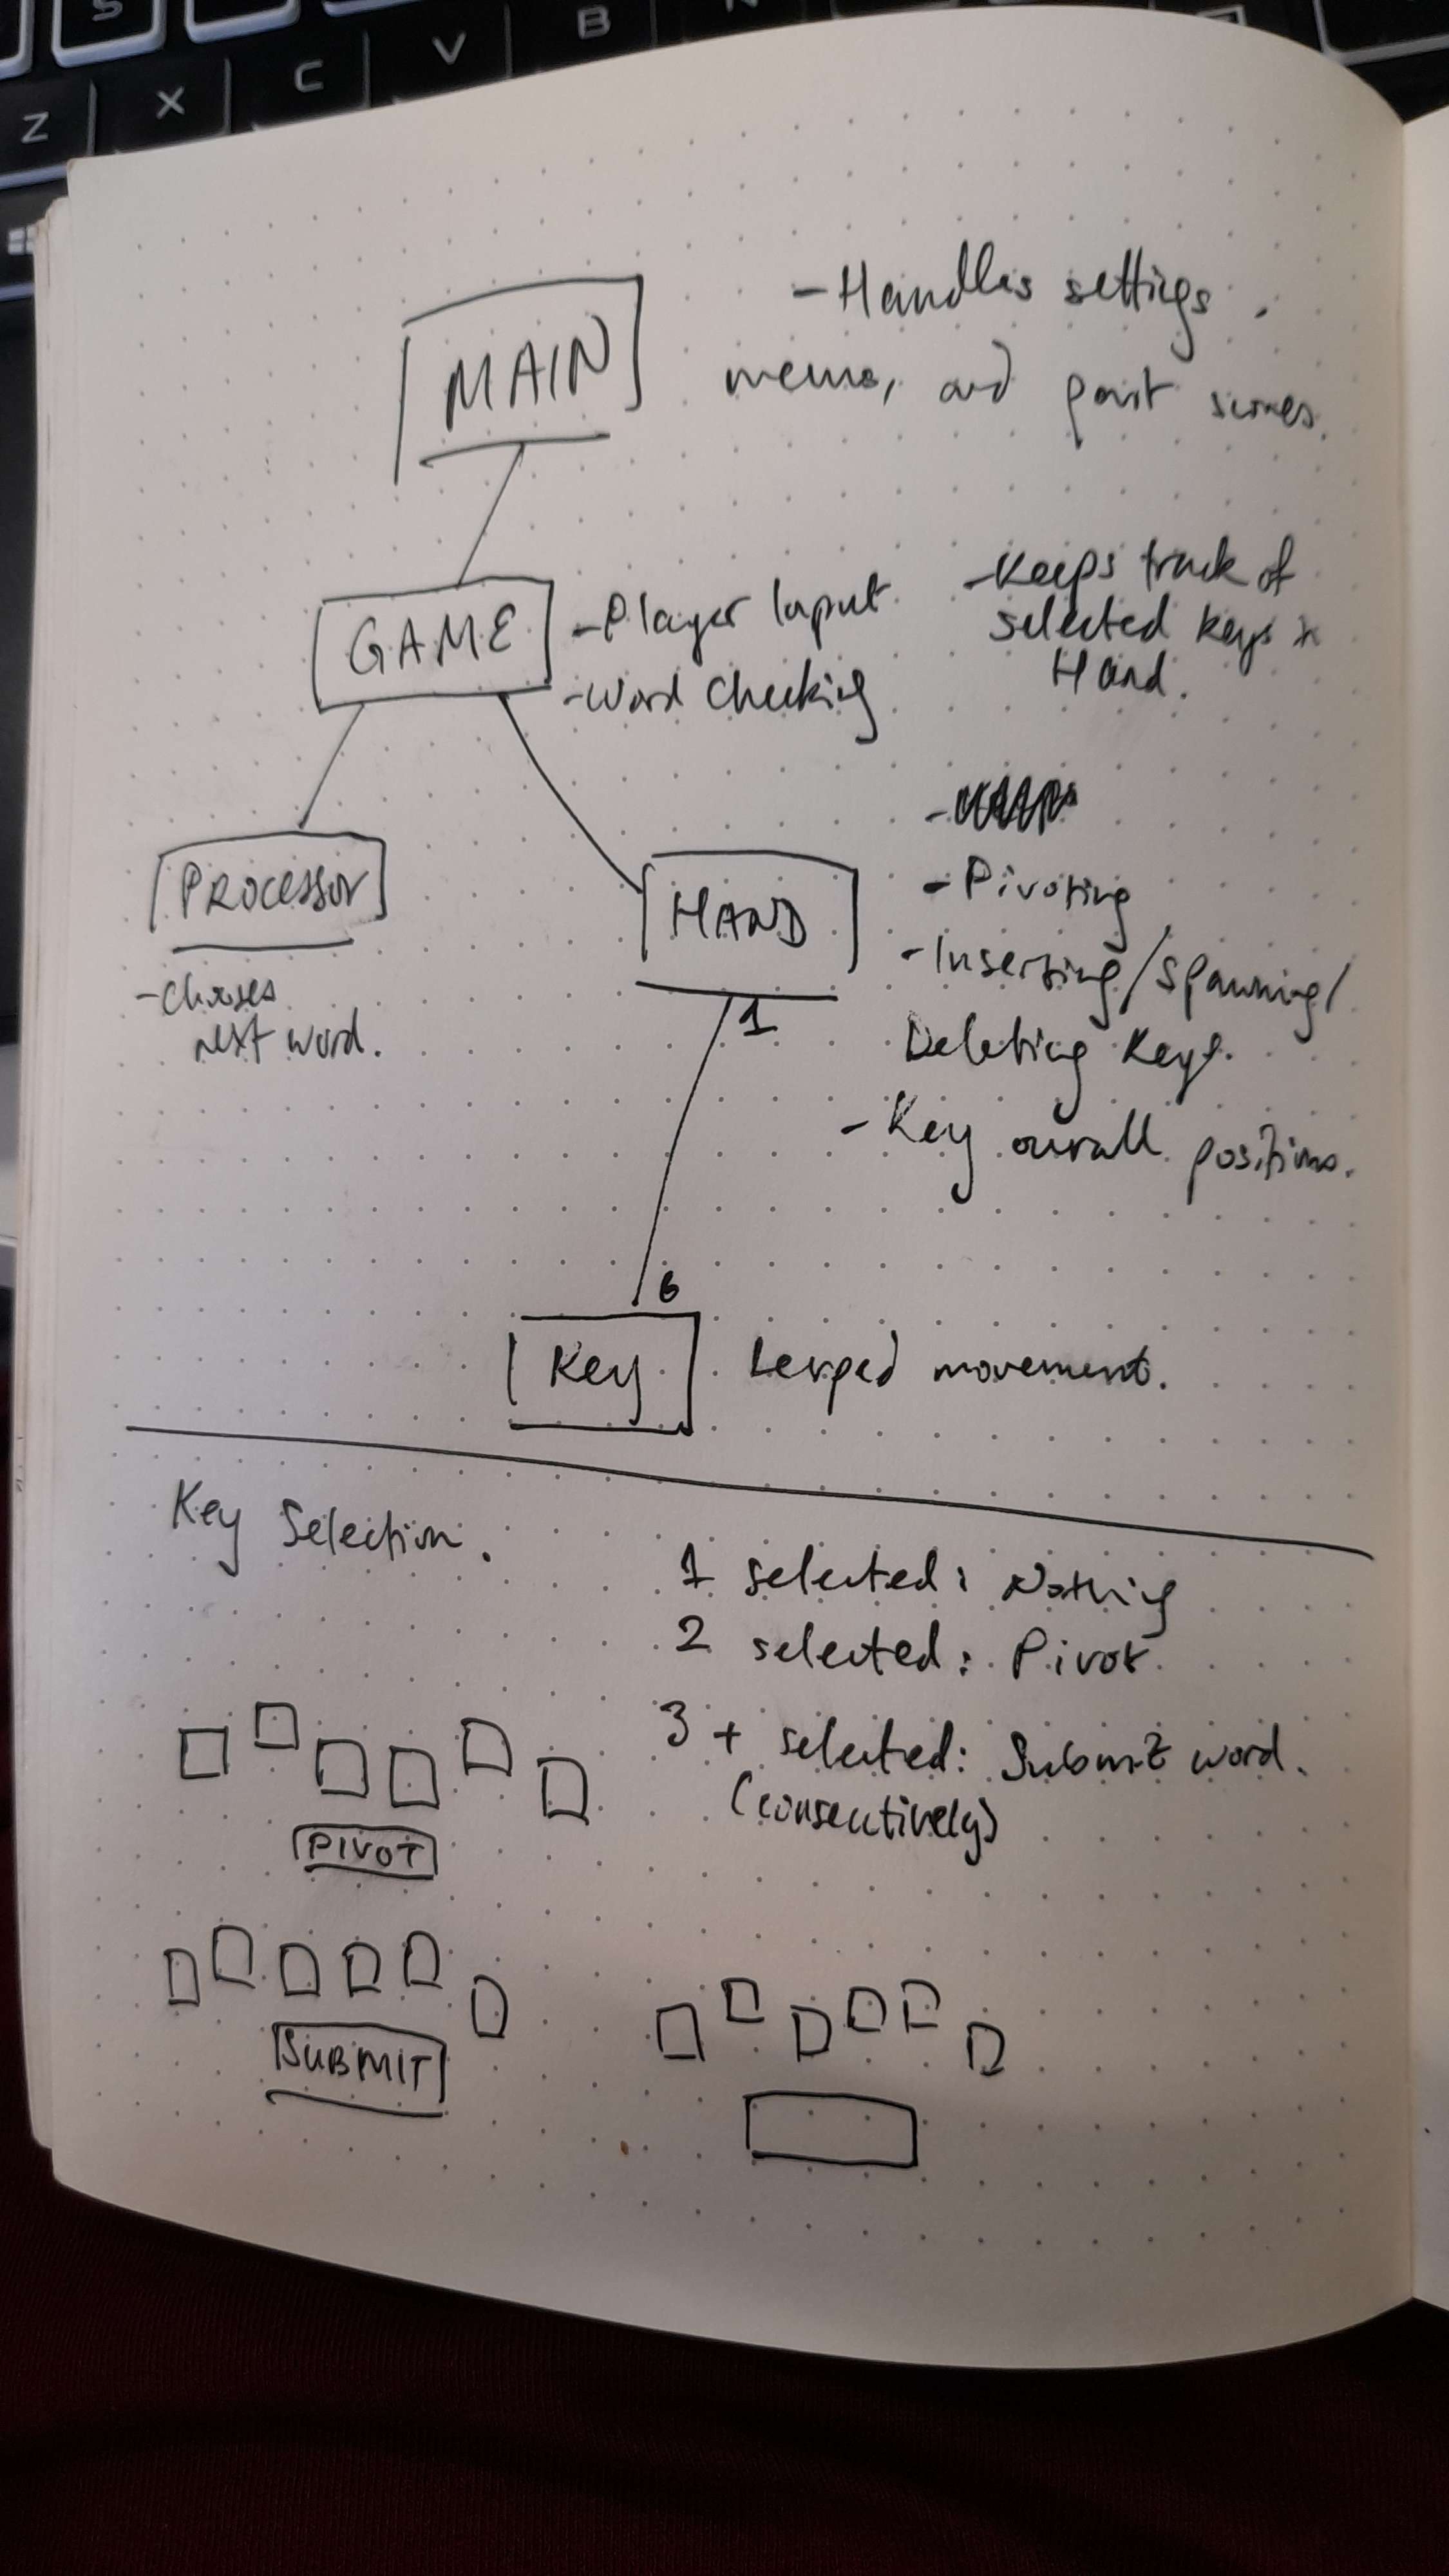 S
B
N
Z
X
C
V
MAIN
-Handles settings.
menus, and past scores.
GAME
-Player Input
-Word Checking
-Keeps track of
selected keys in
Hand.
PROCESSOR
-Chooses
next word.
HAND
1
-Pivoting
-Inserting/Spawning/
Deleting Keys.
-Key overall positions.
6
Key
Lerped movement.
Key Selection.
1 selected: Nothing
2 selected: Pivot.
3+ selected: Submit word.
(consecutively)
PIVOT
SUBMIT